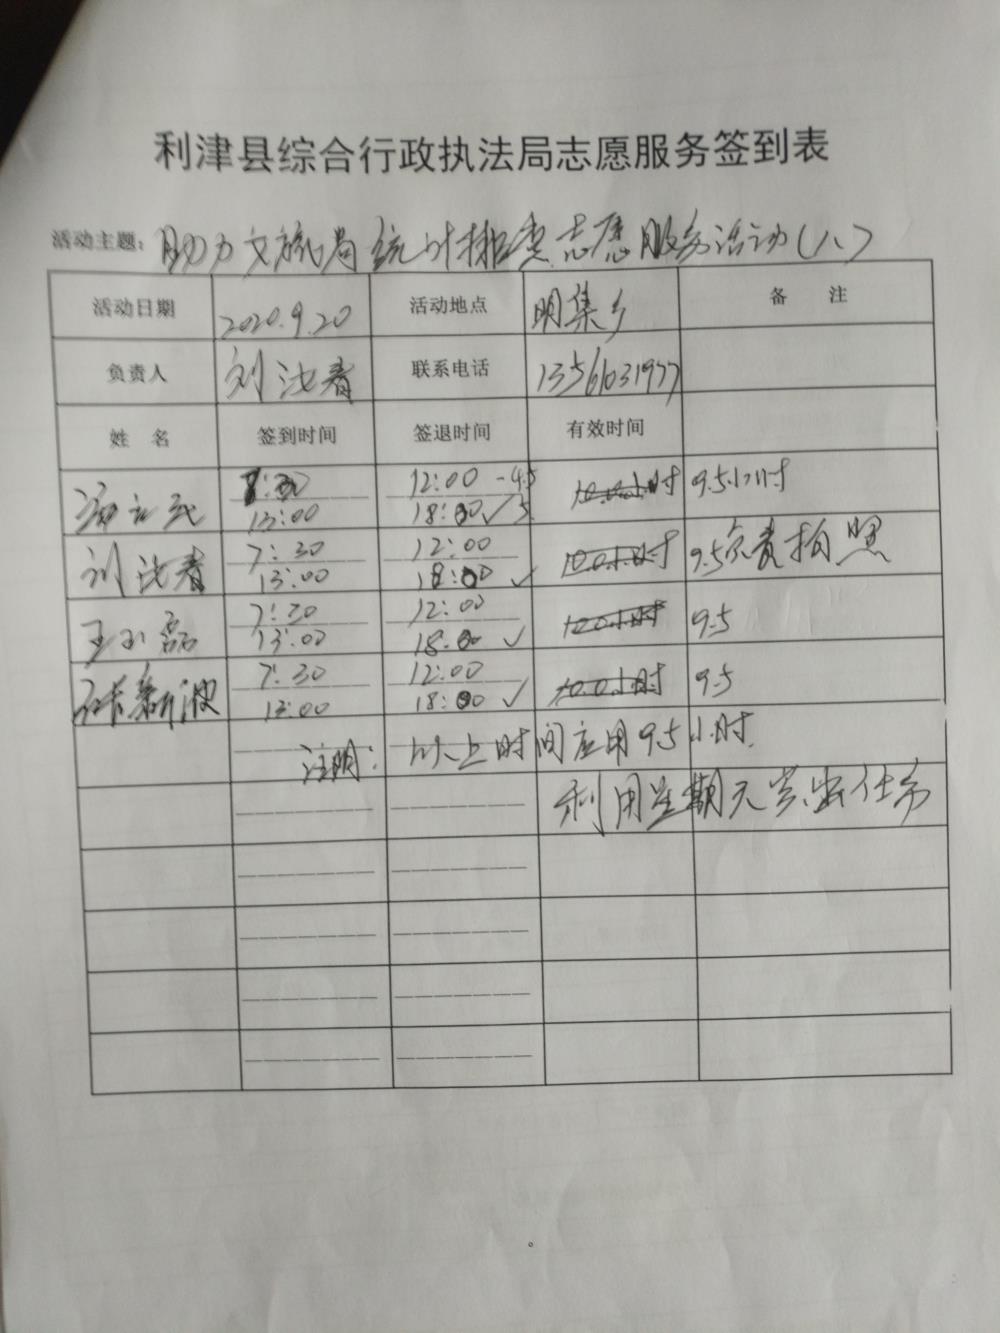 利津县综合行政执法局志愿服务签到表
活动主题：助力文旅局统计排查志愿服务活动（八）
活动日期 2020.9.20 活动地点 明集乡 备 注
负责人 刘汝春 联系电话 13561031977
姓 名 签到时间 签退时间 有效时间
7:30 12:00 -4.5 10.0小时 9.5小时
13:00 18:00 ✓ 5
刘汝春 7:30 12:00 10.0小时 9.5负责拍照
13:00 18:00 ✓
王小磊 7:30 12:00 10.0小时 9.5
13:00 18:00 ✓
新波 7:30 12:00 10.0小时 9.5
13:00 18:00 ✓
注明：以上时间应用9.5小时
利用星期天 任务